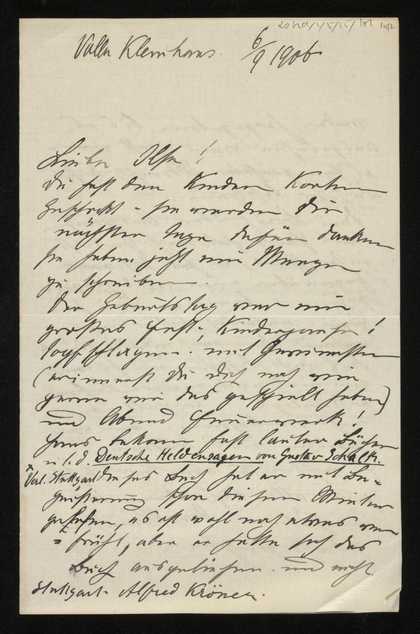 Villa Kleinhans. 6/9 1906
Liebe Ilse!
Du hast den Kindern Karten
geschickt - sie werden Dir
nächster Tage dafür danken
sie haben jetzt eine Menge
zu schreiben.
Der Geburtstag war ein
großes Fest, Kinder!
Topfschlagen mit Gewinnsten
(erinnerst Du Dich noch wie
gerne wir das gespielt haben)
und Abend Feuerwerk!
Hans bekam fast lauter Bücher
u.a. Deutsche Heldensagen von Gustav Schalk.
Verl. Stuttgart dieses Buch hat er mit Be-
geisterung schon diesen Winter
gelesen, es ist wohl noch etwas ver-
früht, aber er hatte sich das
Buch ausgeliehen und nicht
Stuttgart Alfred Kröner.